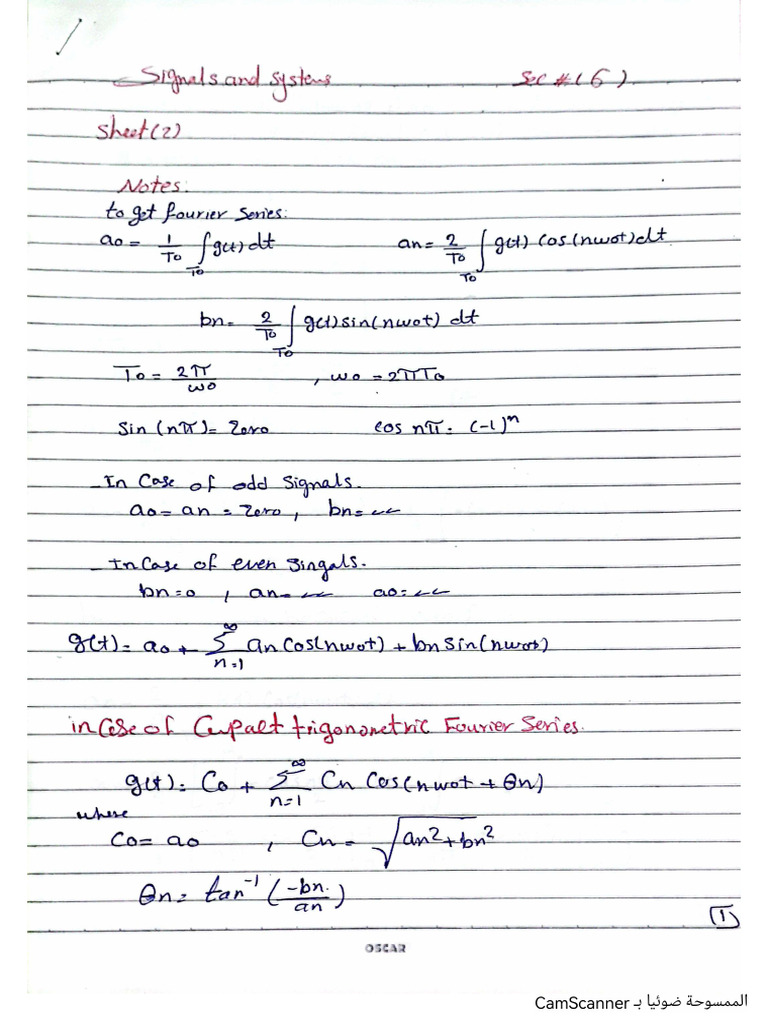 Signals and systems Sec #(6)
Sheet(2)
Notes:
to get fourier series:
a0 = 1/T0 ∫T0 g(t) dt an = 2/T0 ∫T0 g(t) cos(nw0t)dt
bn = 2/T0 ∫T0 g(t) sin(nw0t) dt
T0 = 2π/w0 , w0 = 2πT0
Sin (nπ) = Zero cos nπ = (-1)^n
- In Case of odd Signals.
a0 = an = Zero , bn = ✓✓
- In Case of even Singals.
bn = 0 , an = ✓✓ a0 = ✓✓
g(t) = a0 + ∞Σn=1 an Cos(nw0t) + bn Sin(nw0t)
in Case of Cupalt trigonometric Fourier Series.
g(t) = C0 + ∞Σn=1 Cn Cos(nw0t + θn)
where
C0 = a0 , Cn = √(an² + bn²)
θn = tan⁻¹ (-bn/an)
1
OSCAR
الممسوحة ضوئيا بـ CamScanner